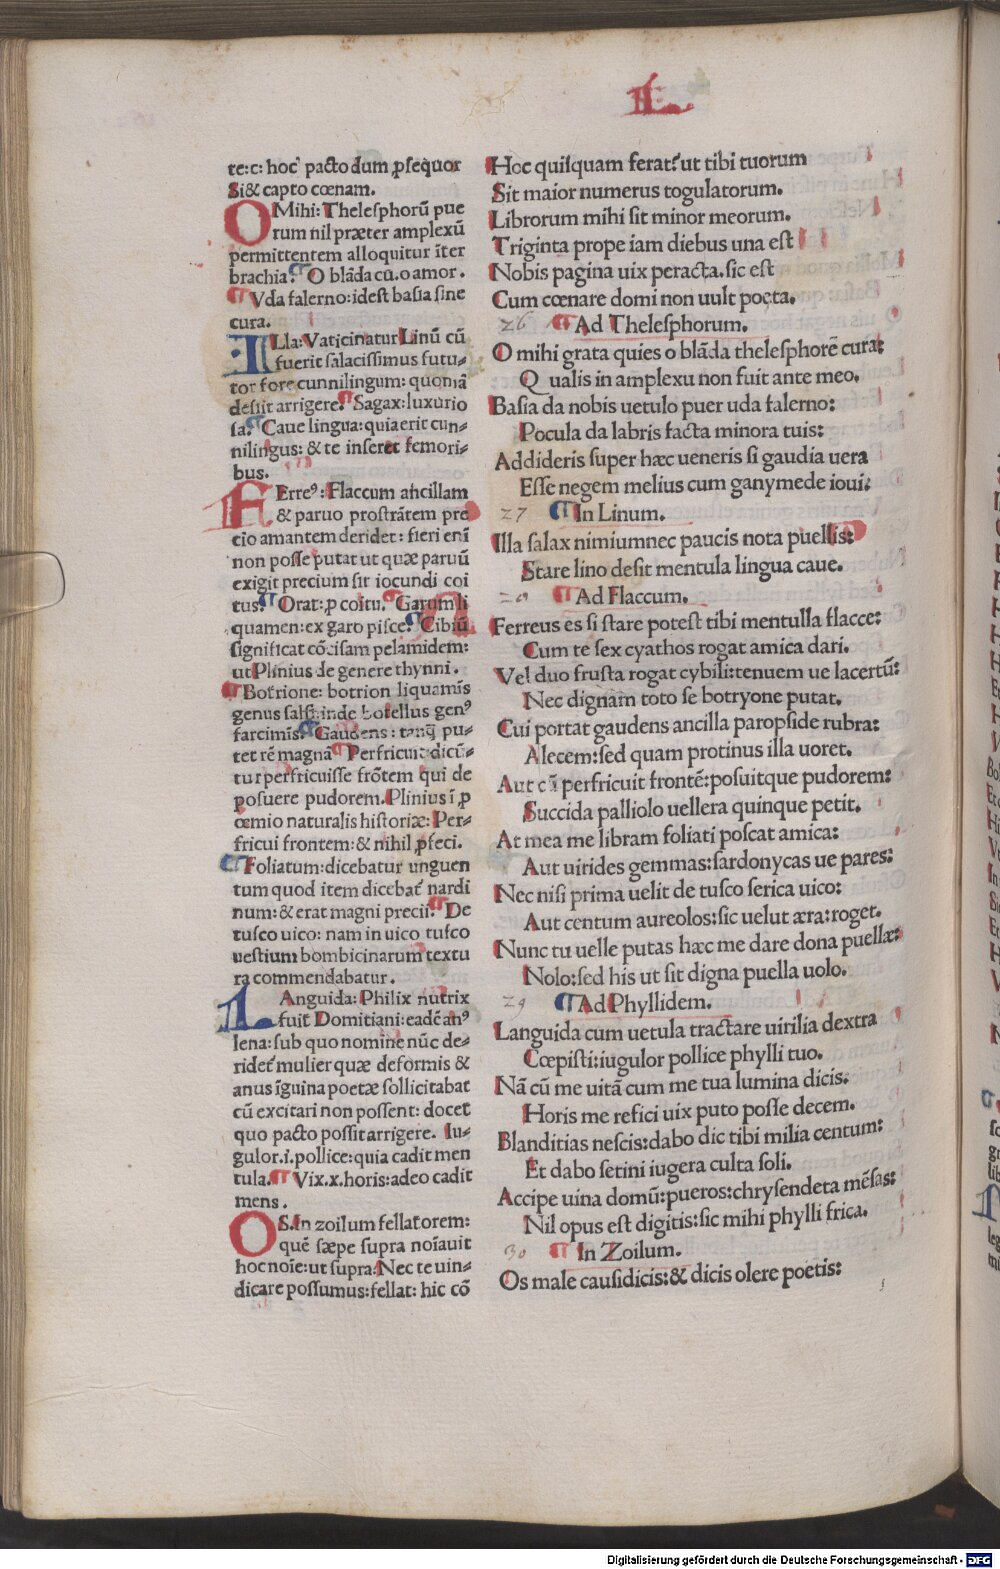 L
te:c: hoc pacto dum ꝑſequor
Si & capto cœnam.
O Mihi: Theleſphorū pue
rum nil præter amplexū
permittentem alloquitur īter
brachia. O blāda cū. o amor.
Vda falerno: ideſt baſia ſine
cura.
ILla: Vaticinatur Linū cū
fuerit ſalaciſſimus futu-
tor fore cunnilingum: quoniā
deſiit arrigere. Sagax: luxurio
ſa. Caue lingua: quia erit cun-
nilingus: & te inſeret femori-
bus.
FErreꝰ: Flaccum ancillam
& paruo proſtrātem pre
cio amantem deridet: fieri enī
non poſſe putat ut quæ paruū
exigit precium ſit iocundi coi
tus. Orat: ꝓ coitu. Garum li
quamen: ex garo piſce. Cibiū
ſignificat cōciſam pelamidem:
ut Plinius de genere thynni.
Botrione: botrion liquamīs
genus ſalſi: inde botellus genꝰ
farcimīs. Gaudens: tanꝗ pu-
tet rē magnā Perfricuit: dicū-
tur perfricuiſſe frōtem qui de
poſuere pudorem. Plinius ī ꝓ
œmio naturalis hiſtoriæ: Per-
fricui frontem: & nihil ꝓfeci.
Foliatum: dicebatur unguen
tum quod item dicebat nardi
num: & erat magni precii. De
tuſco uico: nam in uico tuſco
ueſtium bombicinarum textu
ra commendabatur.
LAnguida: Philix nutrix
fuit Domitiani: eadē anꝰ
lena: ſub quo nomine nūc de-
ridet mulier quæ deformis &
anus īguina poetæ ſollicitabat
cū excitari non poſſent: docet
quo pacto poſſit arrigere. Iu-
gulor .i. pollice: quia cadit men
tula. Vix.x. horis: adeo cadit
mens.
OS. In zoilum fellatorem:
quē ſæpe ſupra noīauit
hoc noīe: ut ſupra: Nec te uin-
dicare poſſumus: fellat: hic cō
Hoc quiſquam ferat? ut tibi tuorum
Sit maior numerus togulatorum.
Librorum mihi ſit minor meorum.
Triginta prope iam diebus una eſt
Nobis pagina uix peracta. ſic eſt
Cum cœnare domi non uult poeta.
26 Ad Theleſphorum.
O mihi grata quies o blāda theleſphorē cura:
Qualis in amplexu non fuit ante meo.
Baſia da nobis uetulo puer uda falerno:
Pocula da labris facta minora tuis:
Addideris ſuper hæc ueneris ſi gaudia uera
Eſſe negem melius cum ganymede ioui:
27 In Linum.
Illa ſalax nimium nec paucis nota puellis:
Stare lino deſit mentula lingua caue.
28 Ad Flaccum.
Ferreus es ſi ſtare poteſt tibi mentulla flacce:
Cum te ſex cyathos rogat amica dari.
Vel duo fruſta rogat cybili: tenuem ue lacertū:
Nec dignam toto ſe botryone putat.
Cui portat gaudens ancilla paropſide rubra:
Alecem: ſed quam protinus illa uoret.
Aut cū perfricuit frontē: poſuitque pudorem:
Succida palliolo uellera quinque petit.
At mea me libram foliati poſcat amica:
Aut uirides gemmas: ſardonycas ue pares:
Nec niſi prima uelit de tuſco ſerica uico:
Aut centum aureolos: ſic uelut æra: roget.
Nunc tu uelle putas hæc me dare dona puellæ:
Nolo: ſed his ut ſit digna puella uolo.
29 Ad Phyllidem.
Languida cum uetula tractare uirilia dextra
Cœpiſti: iugulor pollice phylli tuo.
Nā cū me uitā cum me tua lumina dicis:
Horis me refici uix puto poſſe decem.
Blanditias neſcis: dabo dic tibi milia centum:
Et dabo ſetini iugera culta ſoli.
Accipe uina domū: pueros: chryſendeta mēſas:
Nil opus eſt digitis: ſic mihi phylli frica.
30 In Zoilum.
Os male cauſidicis: & dicis olere poetis:
Digitalisierung gefördert durch die Deutsche Forschungsgemeinschaft - DFG